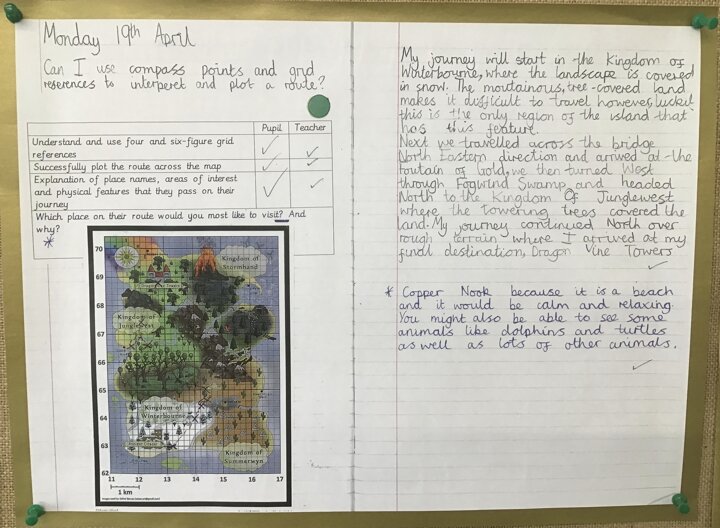 Monday 19th April
Can I use compass points and grid
reserences to interperet and plot a route?
Pupil Teacher
Understand and use four and six-figure grid
references
Successfully plot the route across the map
Explanation of place names, areas of interest
and physical features that they pass on their
journey
Which place on their route would you most like to visit? And
why?
*
70
69
68
67
66
65
64
63
62
11 12 13 14 15 16 17
1 km
Kingdom of
Stormhand
Kingdom of
Junglewest
Kingdom of
Winterbourne
Kingdom of
Summerwyn
My journey will start in the Kingdom of
Winterbourne, where the landscape is covered
in snow. The moutainous, tree-covered land
makes it difficult to travel however, luckily
this is the only region of the island that
has this feature.
Next we travelled across the bridge
North Eastern direction and arrived at the
Foutain of Gold, we then turned West
through Fogwind Swamp and headed
North to the Kingdom Of Junglewest
where the towering trees covered the
land. My journey continued North over
rough terrain where I arrived at my
final destination, Dragon Vine Towers
* Copper Nook because it is a beach
and it would be calm and relaxing.
You might also be able to see some
animals like dolphins and turtles
as well as lots of other animals.